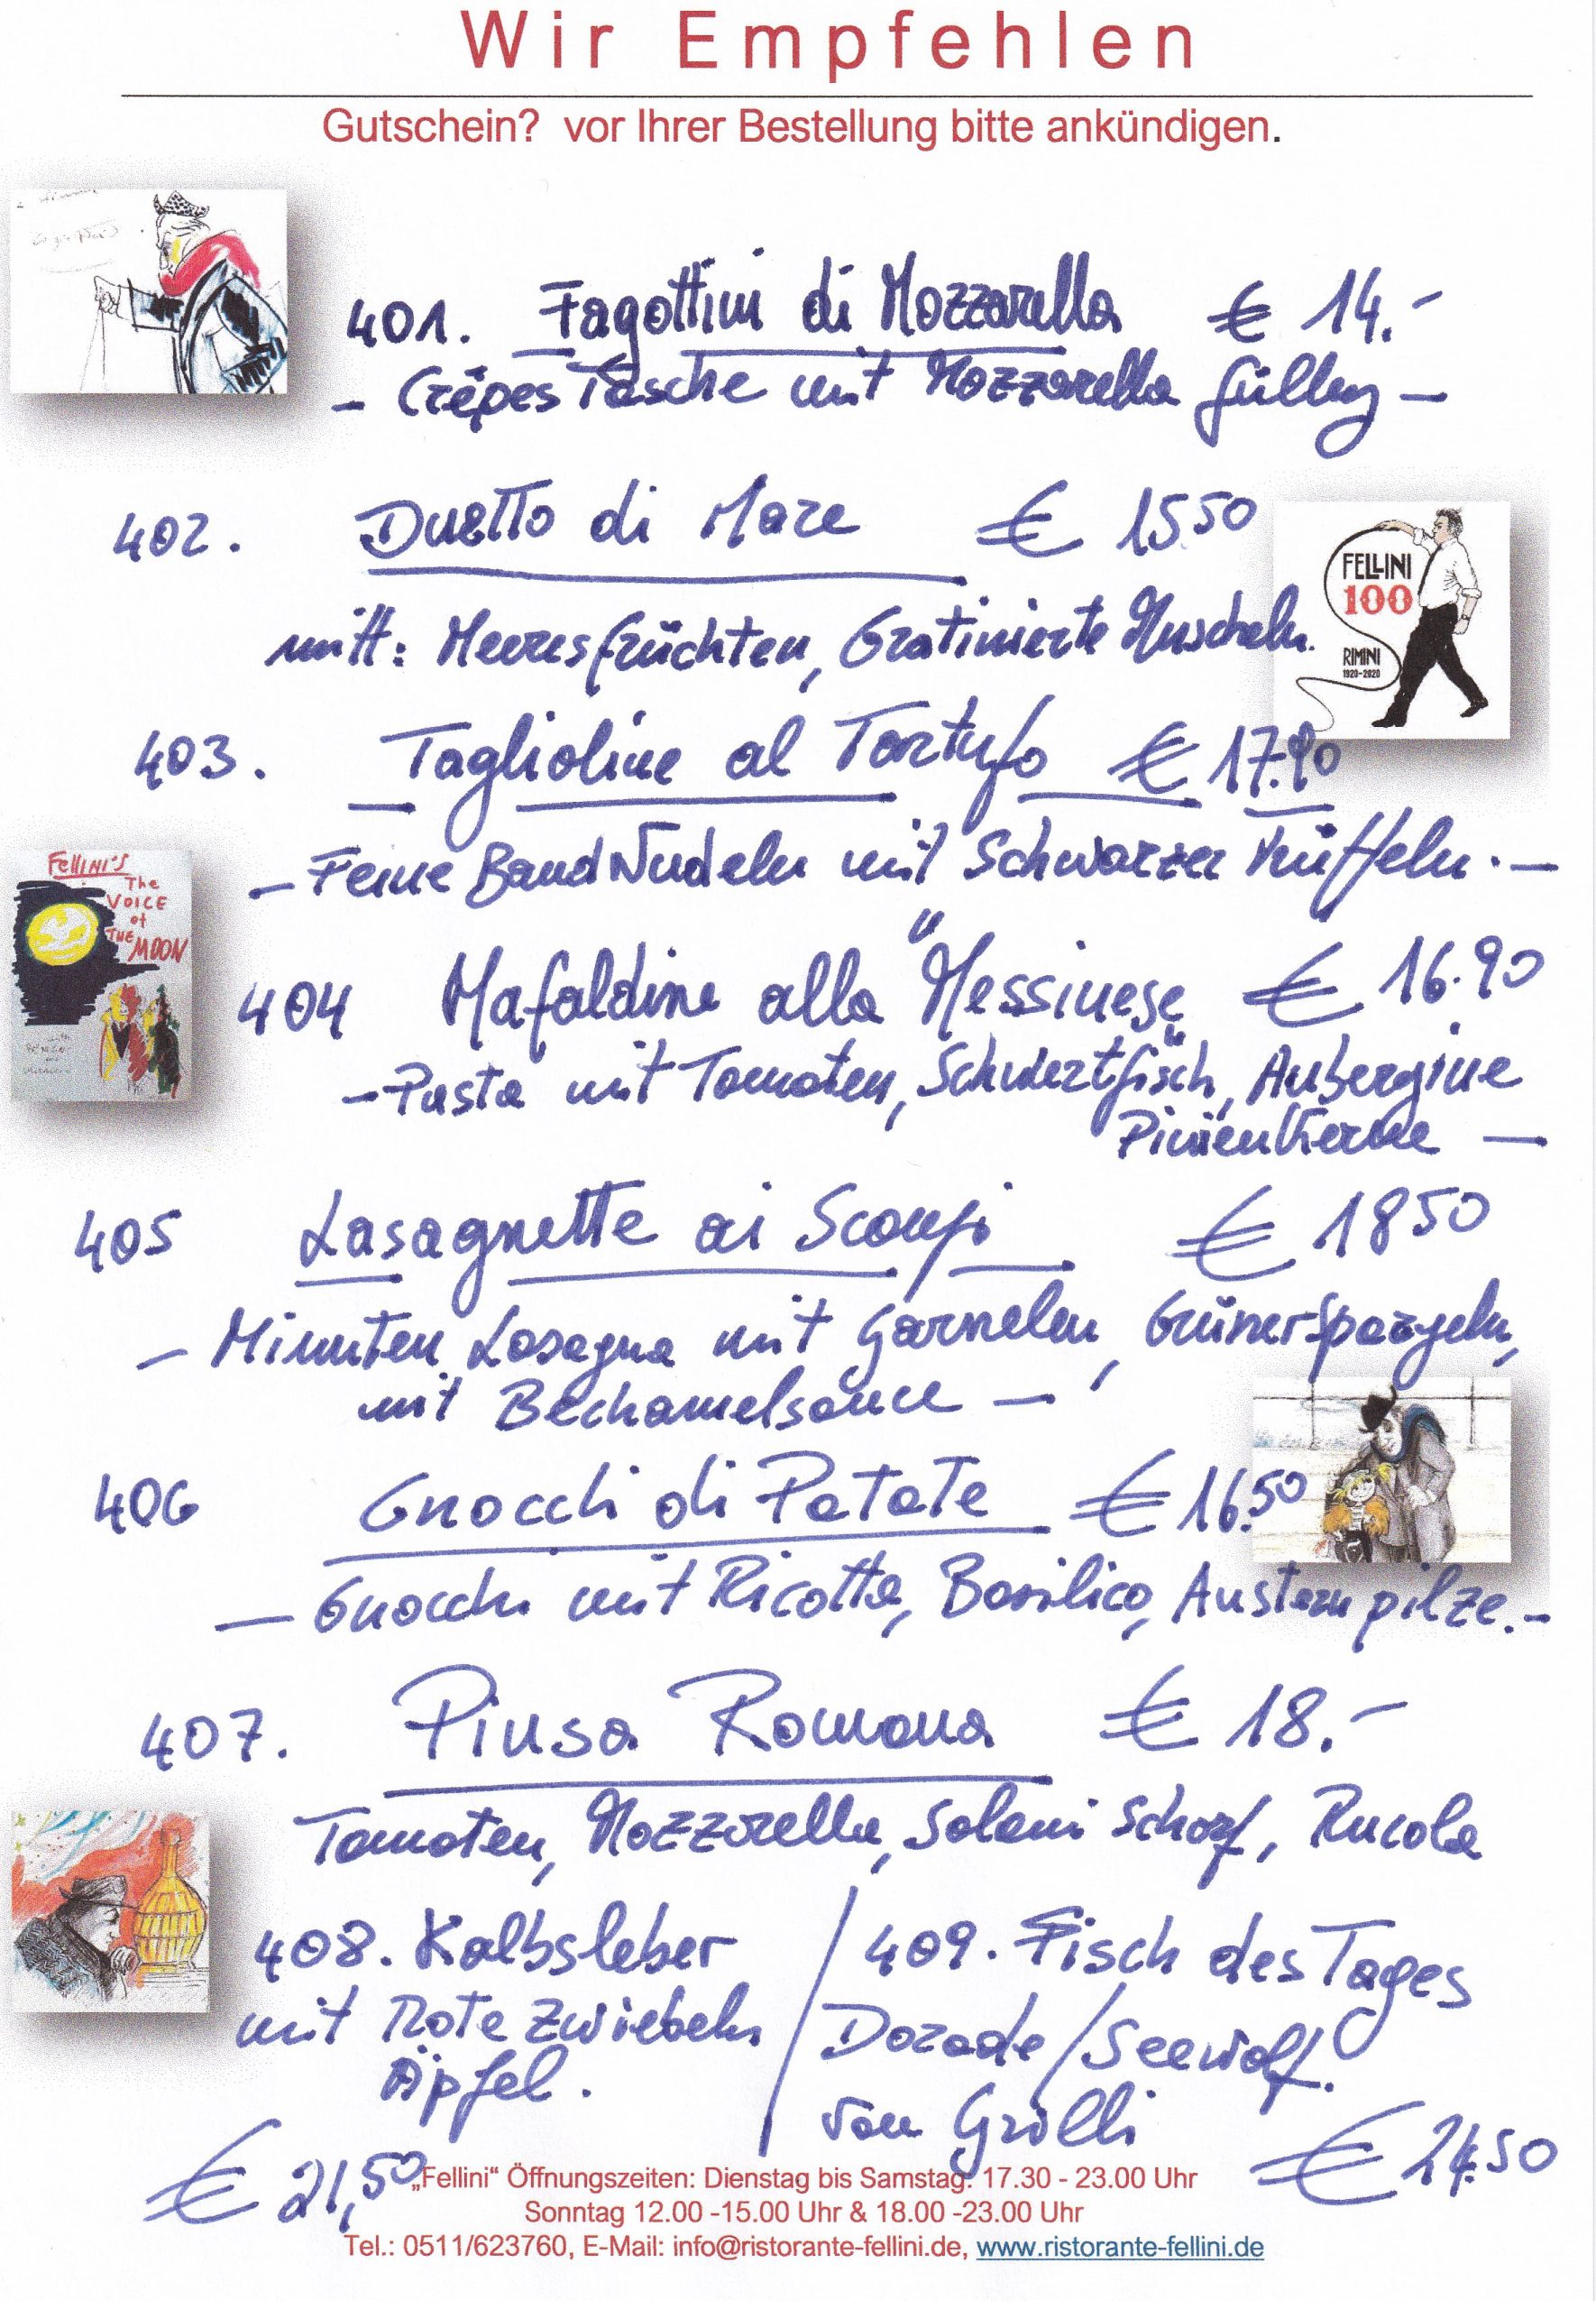 Wir Empfehlen
Gutschein? vor Ihrer Bestellung bitte ankündigen.
401. Fagottini di Mozzarella € 14.-
- Crêpes Tasche mit Mozzarella füllung -
402. Duetto di Mare € 15.50
mitt: Meeresfrüchten, Gratinierte Muscheln.
FELLINI
100
RIMINI
1920-2020
403. Taglioline al Tartufo € 17.90
- Feine Band Nudeln mit Schwarzer Trüffeln. -
FELLINI'S
The
VOICE
of
THE MOON
404 Mafaldine alla "Messinese" € 16.90
- Pasta mit Tomaten, Schwertfisch, Aubergine
Pinienkerne -
405 Lasagnette ai Scampi € 18 50
- Minuten Lasagna mit Garnelen, Grüner Spargeln,
mit Bechamelsauce -
406 Gnocchi di Patate € 16.50
- Gnocchi mit Ricotta, Basilico, Austern pilze. -
407. Pinsa Romana € 18.-
Tomaten, Mozzarella, Salami Scharf, Rucola
408. Kalbsleber
mit Rote Zwiebeln
Äpfel.
€ 21,50
409. Fisch des Tages
Dorade/Seewolf.
von Grilli
€ 24.50
„Fellini“ Öffnungszeiten: Dienstag bis Samstag: 17.30 - 23.00 Uhr
Sonntag 12.00 -15.00 Uhr & 18.00 -23.00 Uhr
Tel.: 0511/623760, E-Mail: info@ristorante-fellini.de, www.ristorante-fellini.de